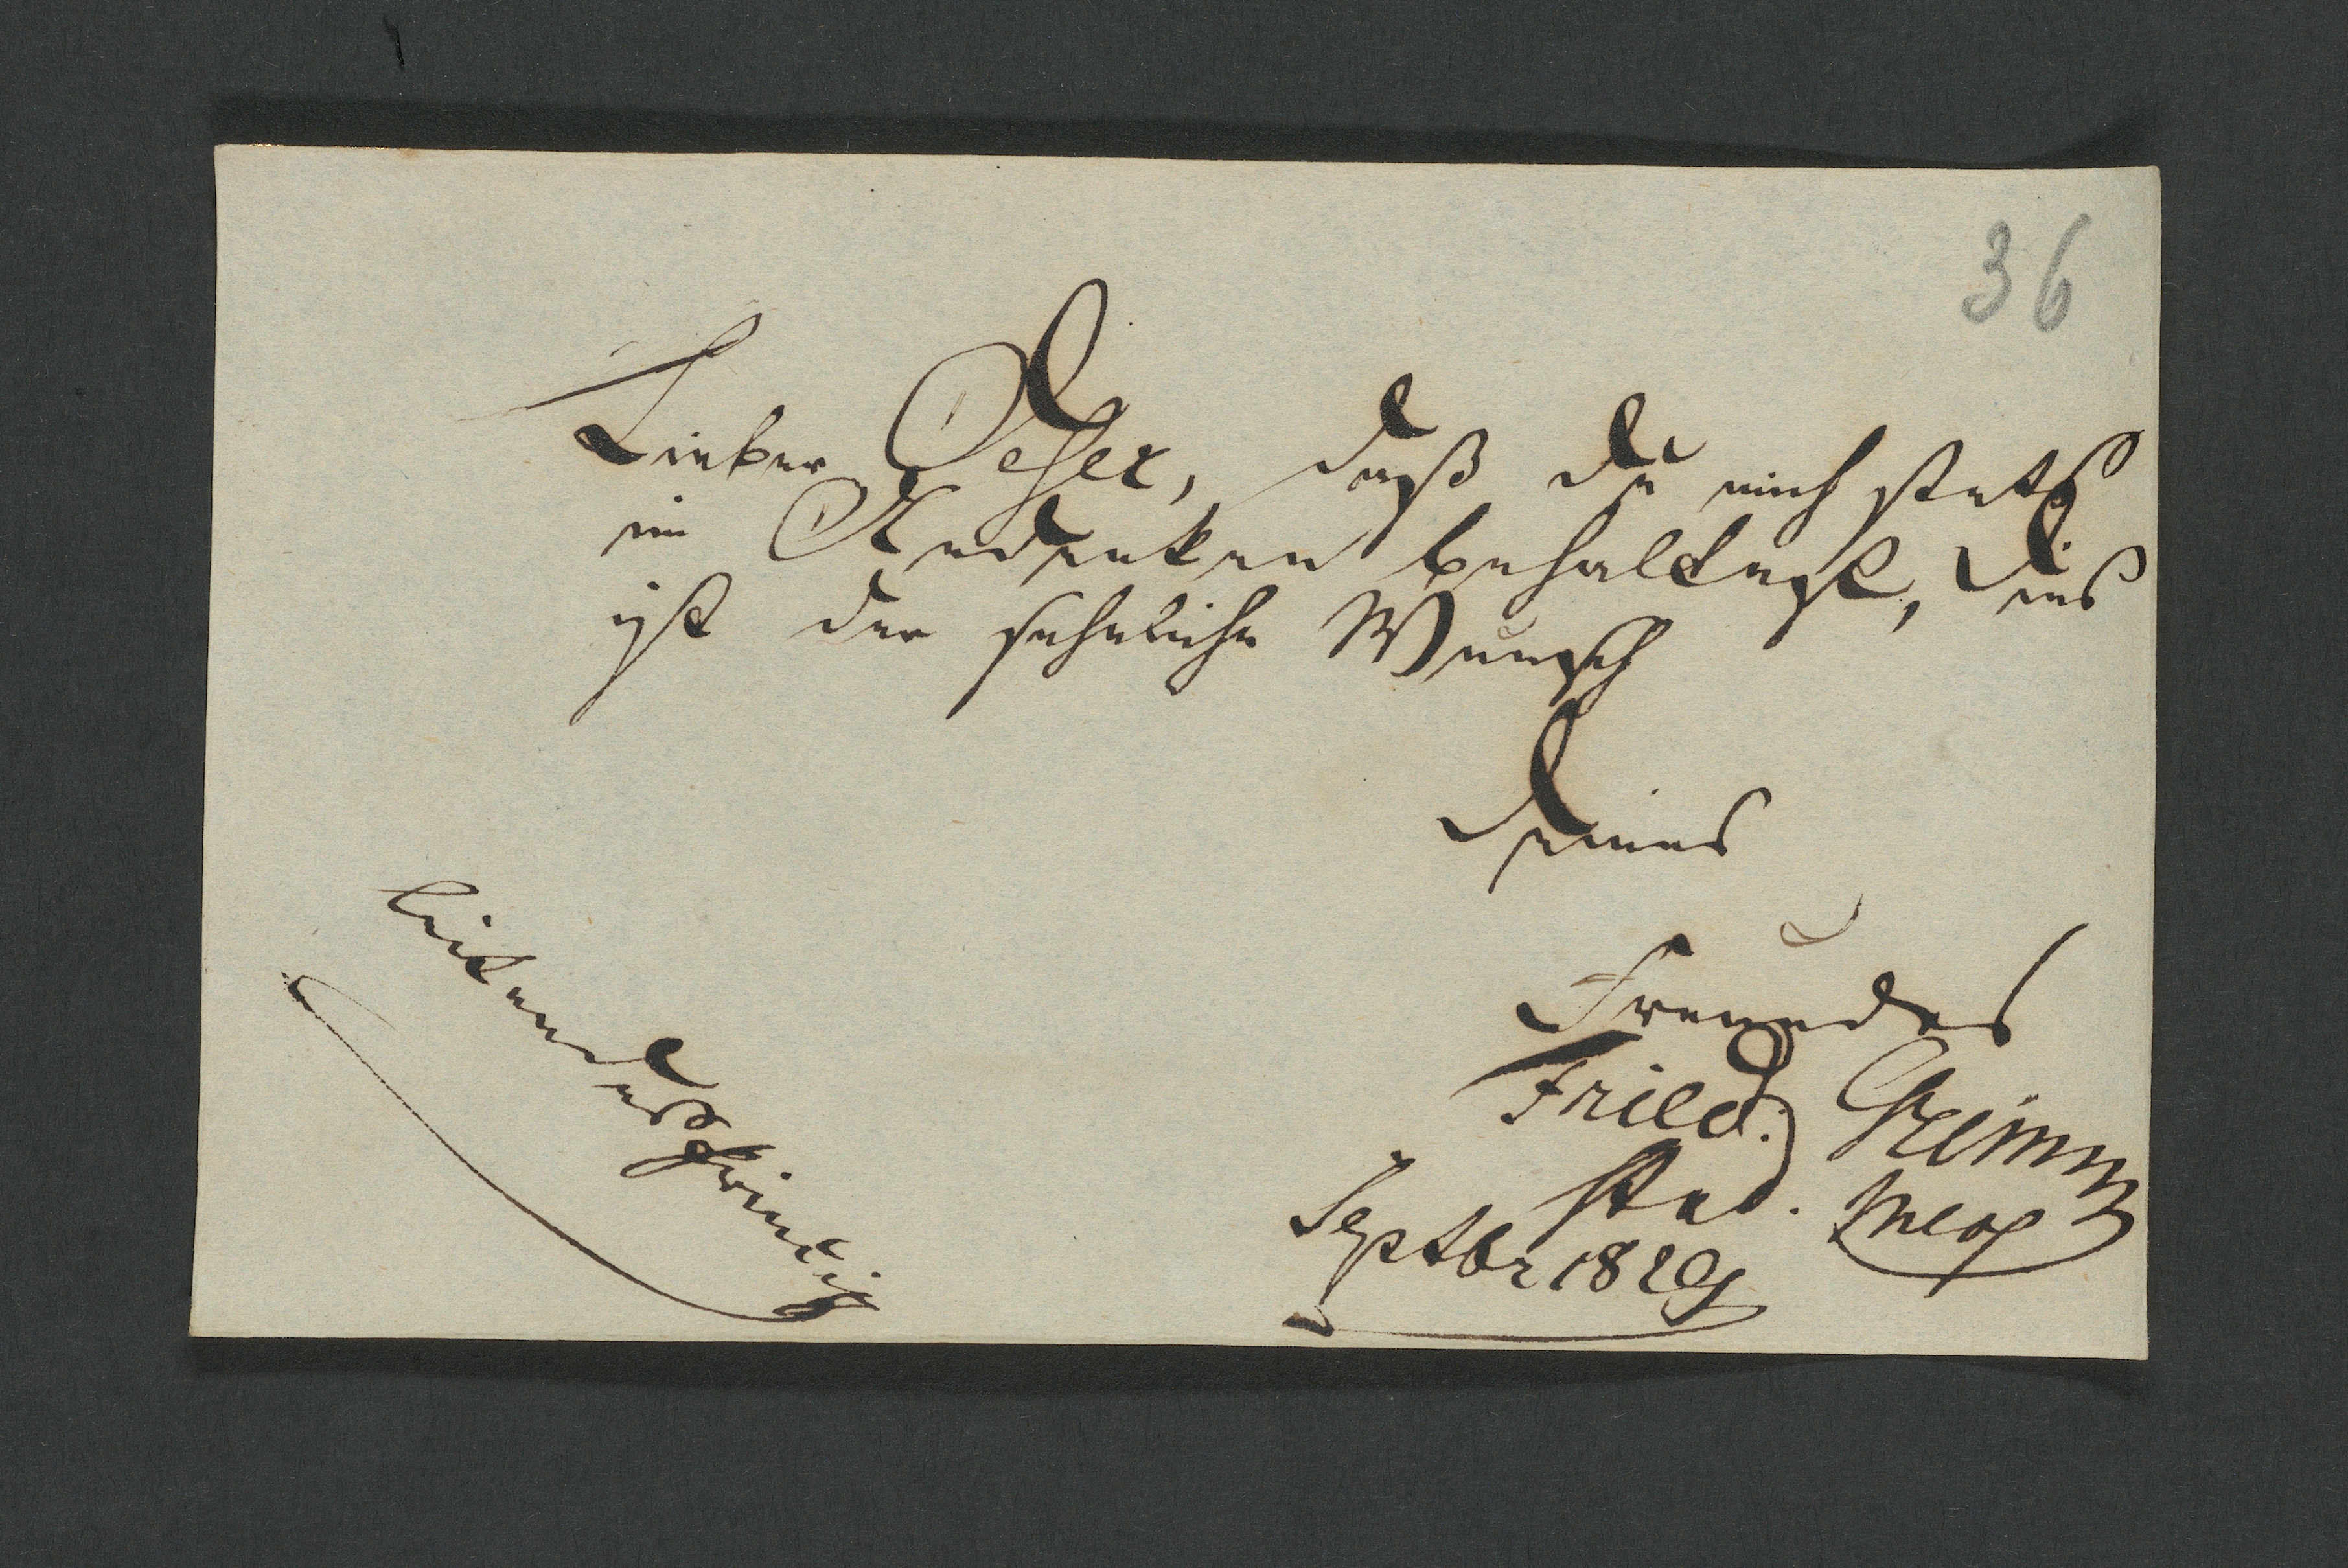 36
Lieber Oeser, daß Du mich stets
im Andenken behaltest, dies
ist der sehnliche Wunsch
Deines
Freundes
Fried. Grimm
stud. theol
Septbr 1829